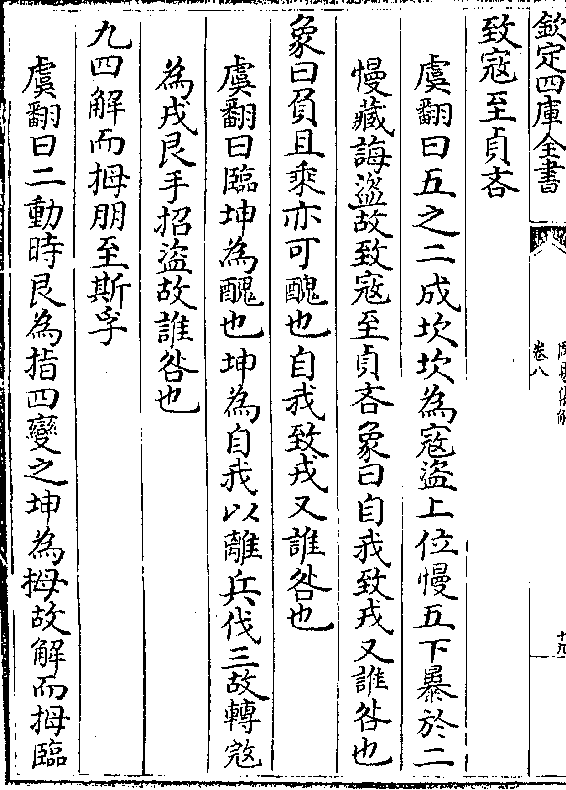 欽定四庫全書
卷八
十九
致寇至貞吝
虞翻曰五之二成坎坎為寇盜上位慢五下暴於二
慢藏誨盜故致寇至貞吝象曰自我致戎又誰咎也
象曰負且乘亦可醜也自我致戎又誰咎也
虞翻曰臨坤為醜也坤為自我以離兵伐三故轉寇
為戎艮手招盜故誰咎也
九四解而拇朋至斯孚
虞翻曰二動時艮為指四變之坤為拇故解而拇臨